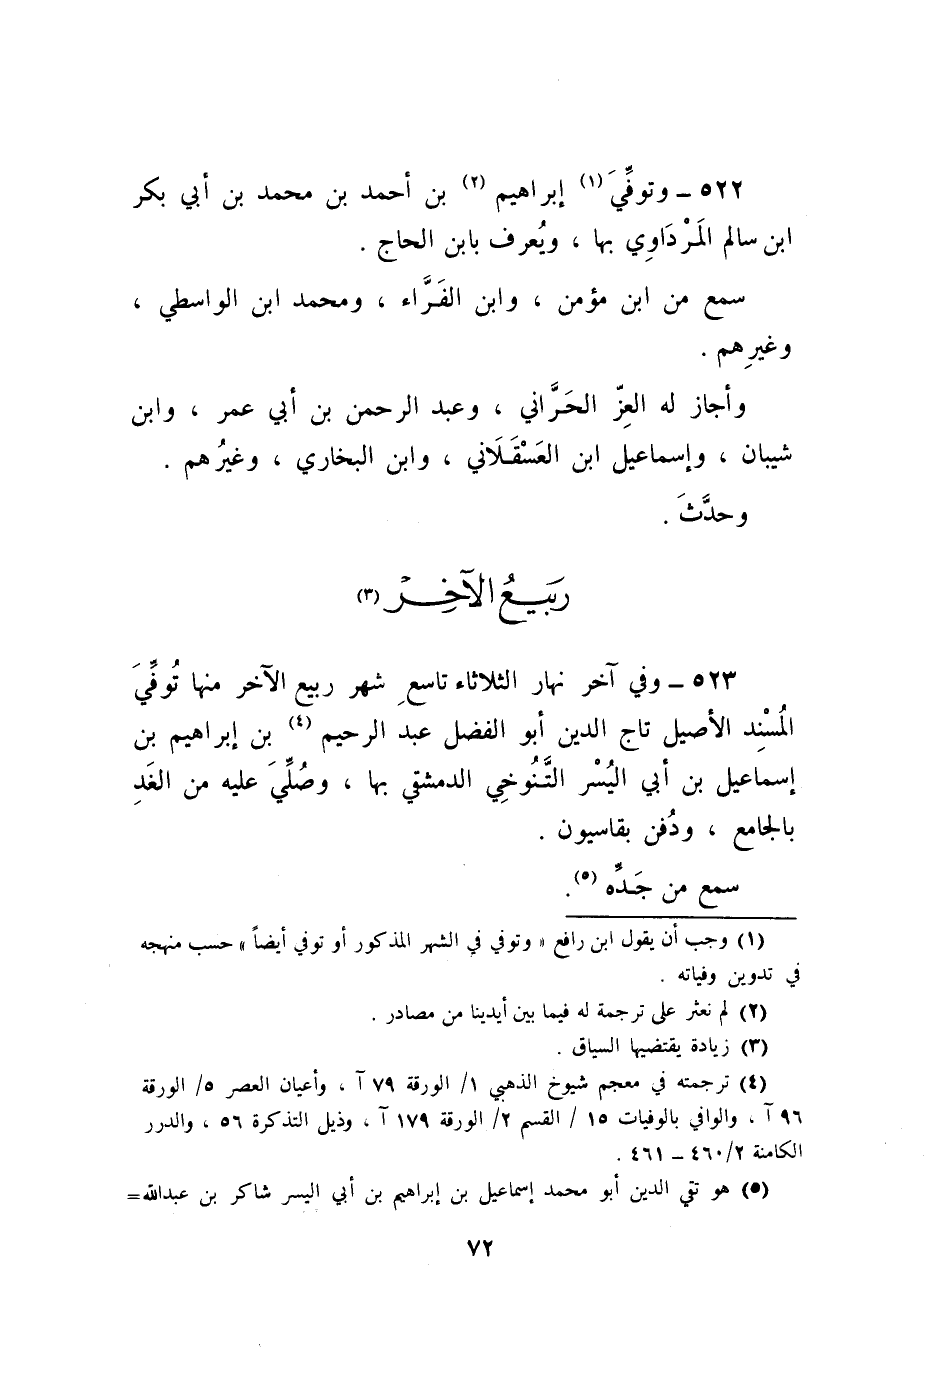 ٥٢٢ ــ وتوفِّيَ (١) إبراهيم (٢) بن أحمد بن محمد بن أبي بكر
ابن سالم المَرْدَاوِي بها ، ويُعرف بابن الحاج .
سمع من ابن مؤمن ، وابن الفَرَّاء ، ومحمد ابن الواسطي ،
وغيرِهم .
وأجاز له العِزّ الحَرَّاني ، وعبد الرحمن بن أبي عمر ، وابن
شيبان ، وإسماعيل ابن العَسْقَلَاني ، وابن البخاري ، وغيرُهم .
وحدَّثَ .
رَبِيعُ الآخِر (٣)
٥٢٣ ــ وفي آخر نهار الثلاثاء تاسعِ شهر ربيع الآخر منها تُوفِّيَ
المُسْنِد الأصيل تاج الدين أبو الفضل عبد الرحيم (٤) بن إبراهيم بن
إسماعيل بن أبي اليُسْر التَّنُوخِي الدمشقي بها ، وصُلِّيَ عليه من الغَدِ
بالجامع ، ودُفن بقاسيون .
سمع من جَدِّه (٥).
(١) وجب أن يقول ابن رافع « وتوفي في الشهر المذكور أو توفي أيضاً » حسب منهجه
في تدوين وفياته .
(٢) لم نعثر على ترجمة له فيما بين أيدينا من مصادر .
(٣) زيادة يقتضيها السياق .
(٤) ترجمته في معجم شيوخ الذهبي ١/ الورقة ٧٩ آ ، وأعيان العصر ٥/ الورقة
٩٦ آ ، والوافي بالوفيات ١٥ / القسم ٢/ الورقة ١٧٩ آ ، وذيل التذكرة ٥٦ ، والدرر
الكامنة ٤٦٠/٢ ــ ٤٦١ .
(٥) هو تقي الدين أبو محمد إسماعيل بن إبراهيم بن أبي اليسر شاكر بن عبدالله=
٧٢